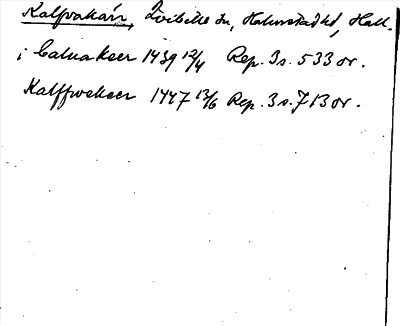 Kalfvakärr, Kvibille sn, Halmstad hd, Hall.
i Caluakeer 1439 12/4 Rep. 3 s. 533 or.
Kalffwekeer 1447 13/6 Rep. 3 s. 713 or.